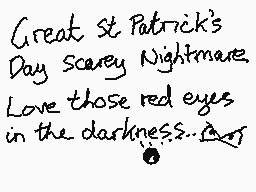 Great St Patrick's
Day scarey Nightmare
Love those red eyes
in the darkness..